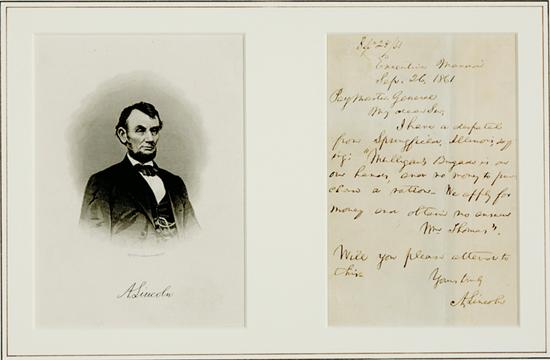 A Lincoln
Executive Mansion
Sep. 26, 1861
Pay Master General
My dear Sir,
I have a despatch
from Springfield, Illinois, say
ing: "Mulligan's Brigade is on
our hands, and no money to pur
chase a ration. We apply for
money and obtain no answer
Wm Thomas".
Will you please attend to
this.
Yours truly
A. Lincoln